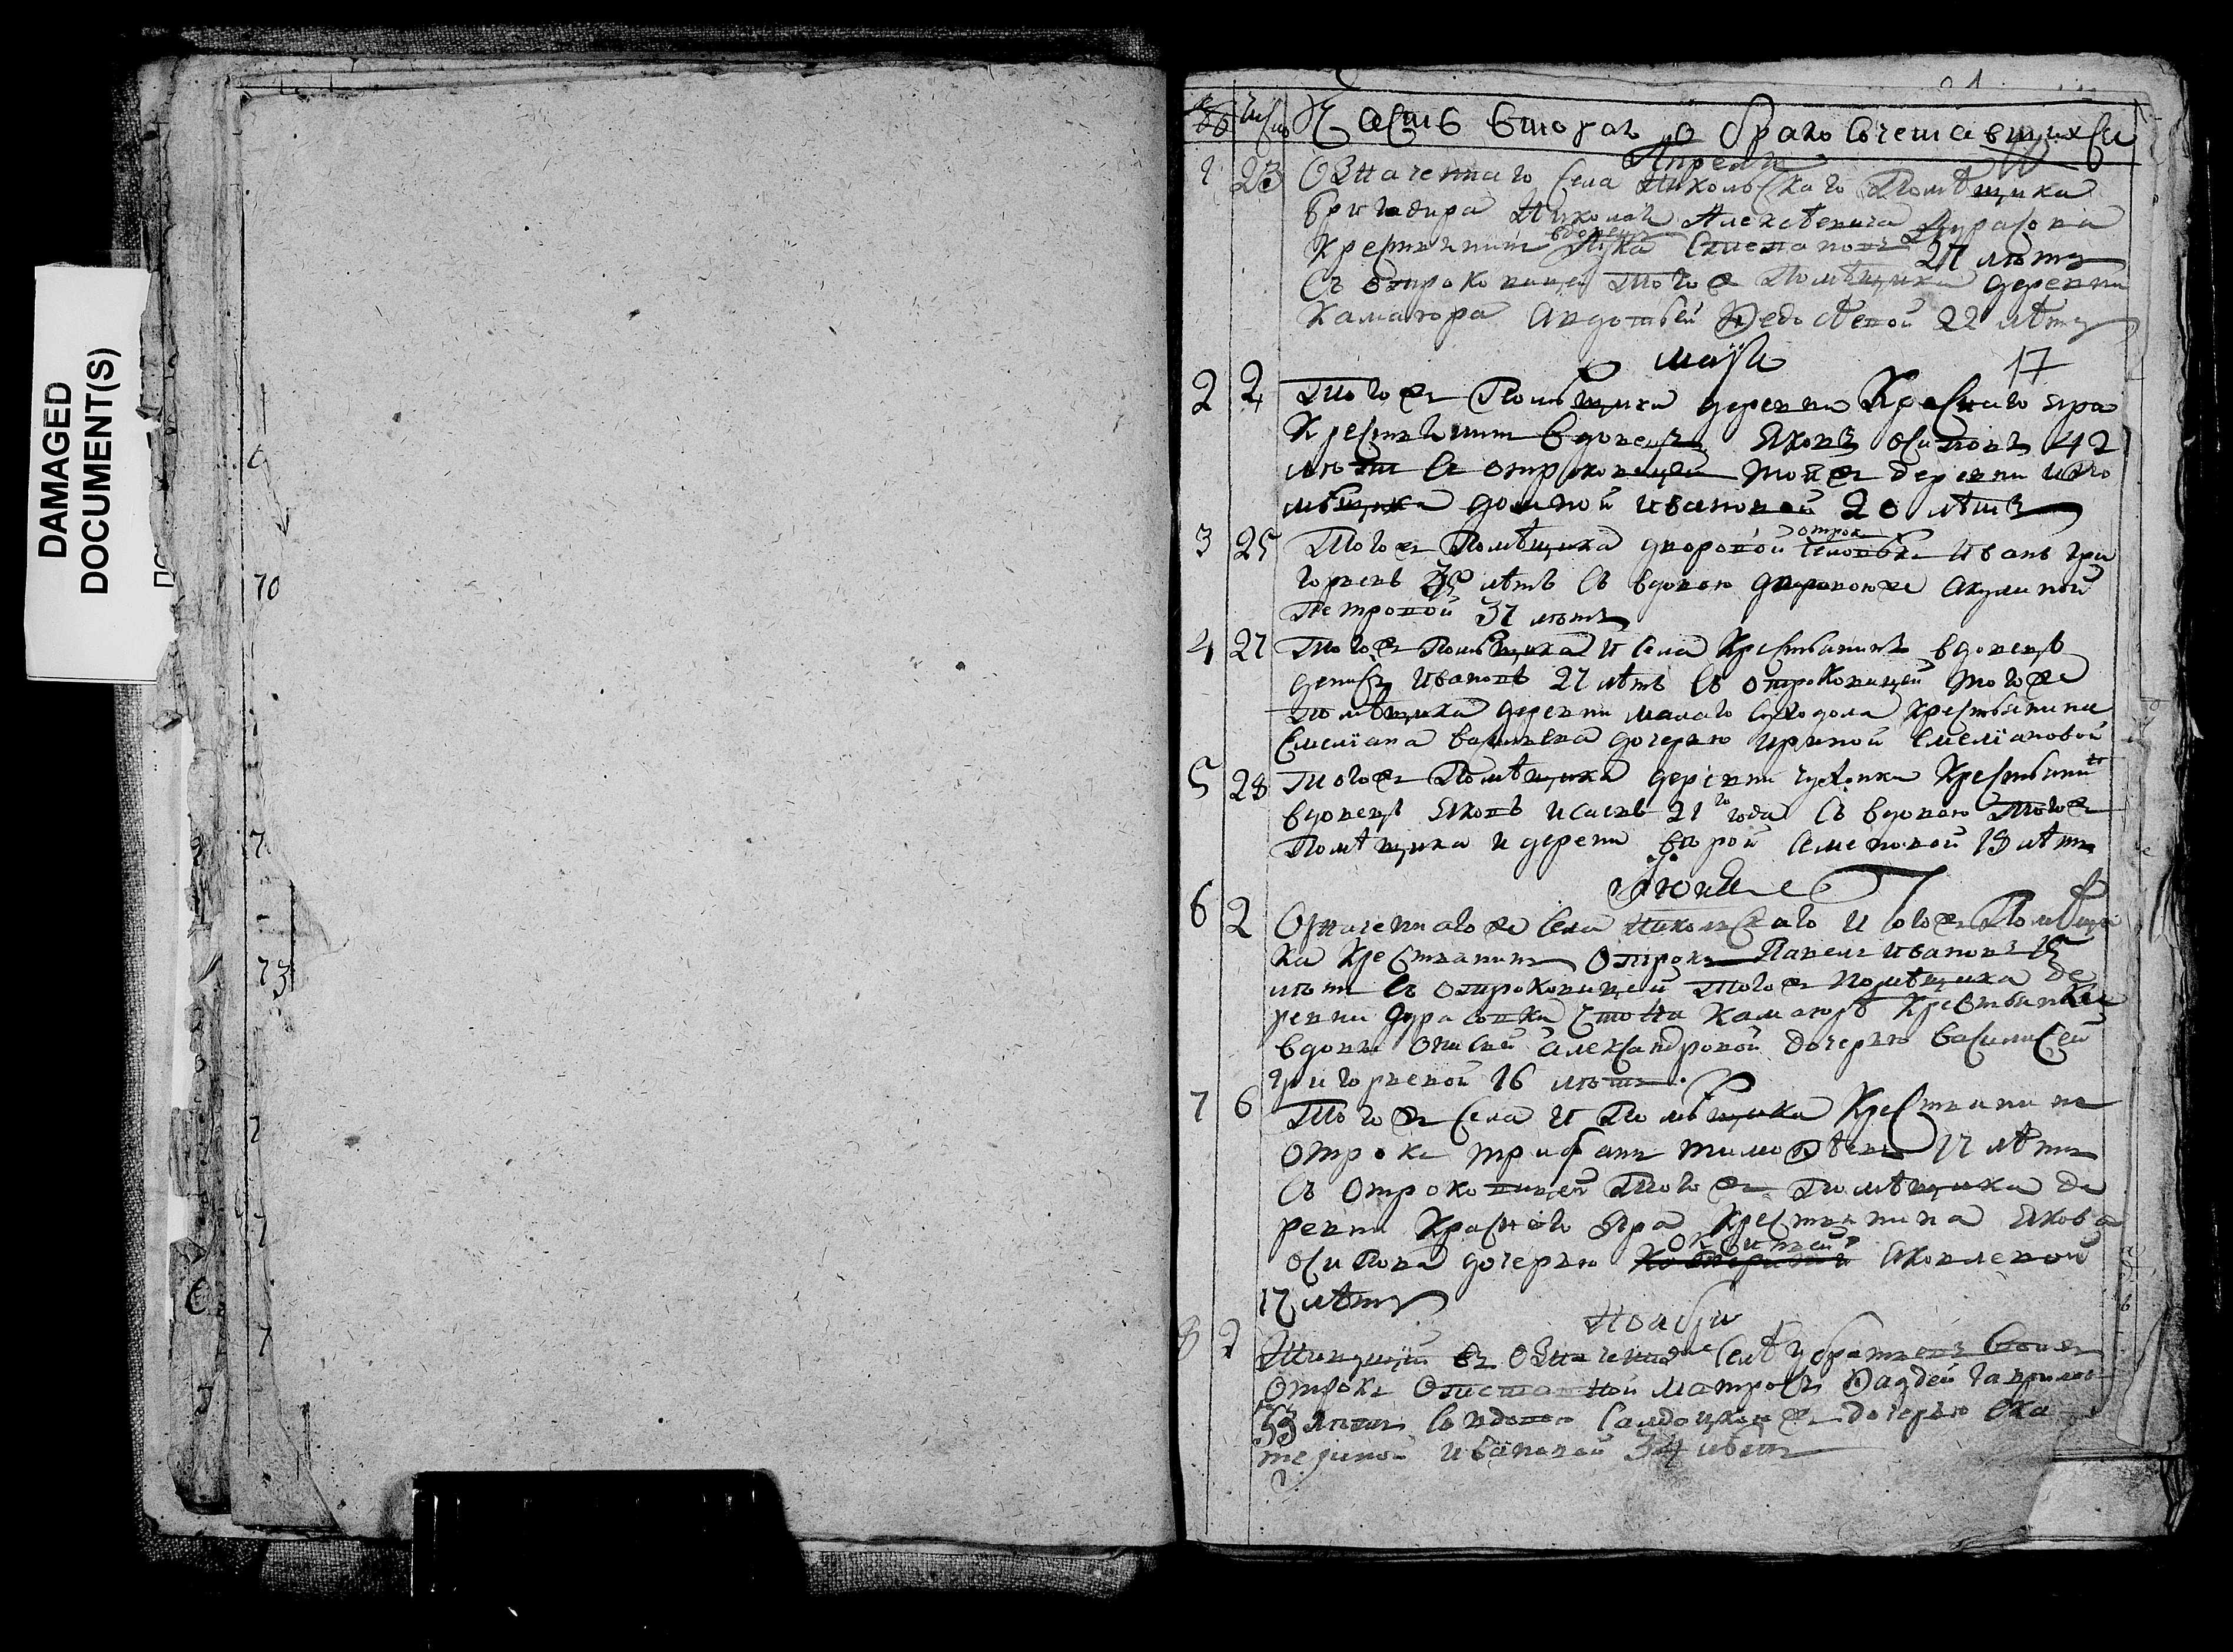 DAMAGED
DOCUMENT(S)
70
7
73
7
21
№ число Часть вторая о бракосочетавшихся
Апреля
1 23 Означеннаго села Никольскаго помѣщика
бригадира Николая Алексѣевича Дурасова
крестьянинъ вдовецъ Лука Степановъ 27 летъ
съ отроковицей тогожъ помѣщика деревни
Камаюра Авдотьей Федосѣевой 22 лѣтъ
маїя 17
2 2 Тогожъ помѣщика деревни Краснаго яра
крестьянинъ вдовецъ Яковъ Осиповъ 42
летъ съ отроковицей тойжъ деревни и по
мѣщика домной Ивановой 20 лѣтъ
3 25 Тогожъ помѣщика дворовой человѣкъ отрокъ Иванъ Гри
горьевъ 35 лѣтъ съ вдовою дворовоюже Акулиной
Петровой 37 летъ
4 27 Тогожъ помѣщика и села крестьянинъ вдовецъ
денисъ Ивановъ 27 лѣтъ съ отроковицей тогоже
помѣщика деревни малаго суходола крестьянина
Емелїана васильева дочерью Ириной Емелїановой
5 28 Тогожъ помѣщика деревни крестьянинъ
вдовецъ Яковъ Исаевъ 21го года съ вдовою тогожъ
помѣщика и деревни Семеновой 19 лѣтъ
Июня
6 2 Означеннагоже села Никольскаго и тогожъ помѣщи
ка крестьянинъ отрокъ Павелъ Ивановъ 15
летъ съ отроковицей тогожъ помѣщика де
ревни дурасовки что на Камаюрѣ крестьянки
вдовы Александровой дочерью Василисей
Григорьевой 16 летъ
7 6 Тогожъ села и помѣщика крестьянинъ
отрокъ Трифанъ Тимофѣевъ 17 лѣтъ
съ отроковицей тогожъ помѣщика де
ревни Краснаго Яра крестьянина Якова
Осипова дочерью Оксиньей Яковлевой
17 лѣтъ
Ноября
8 2 Живущий въ означенномъ селѣ
отрокъ отставной матросъ Фаддей Гаврилов
33 летъ съ вдовою салдацкоюжъ дочерью Ека
териной Ивановой 34 лѣтъ